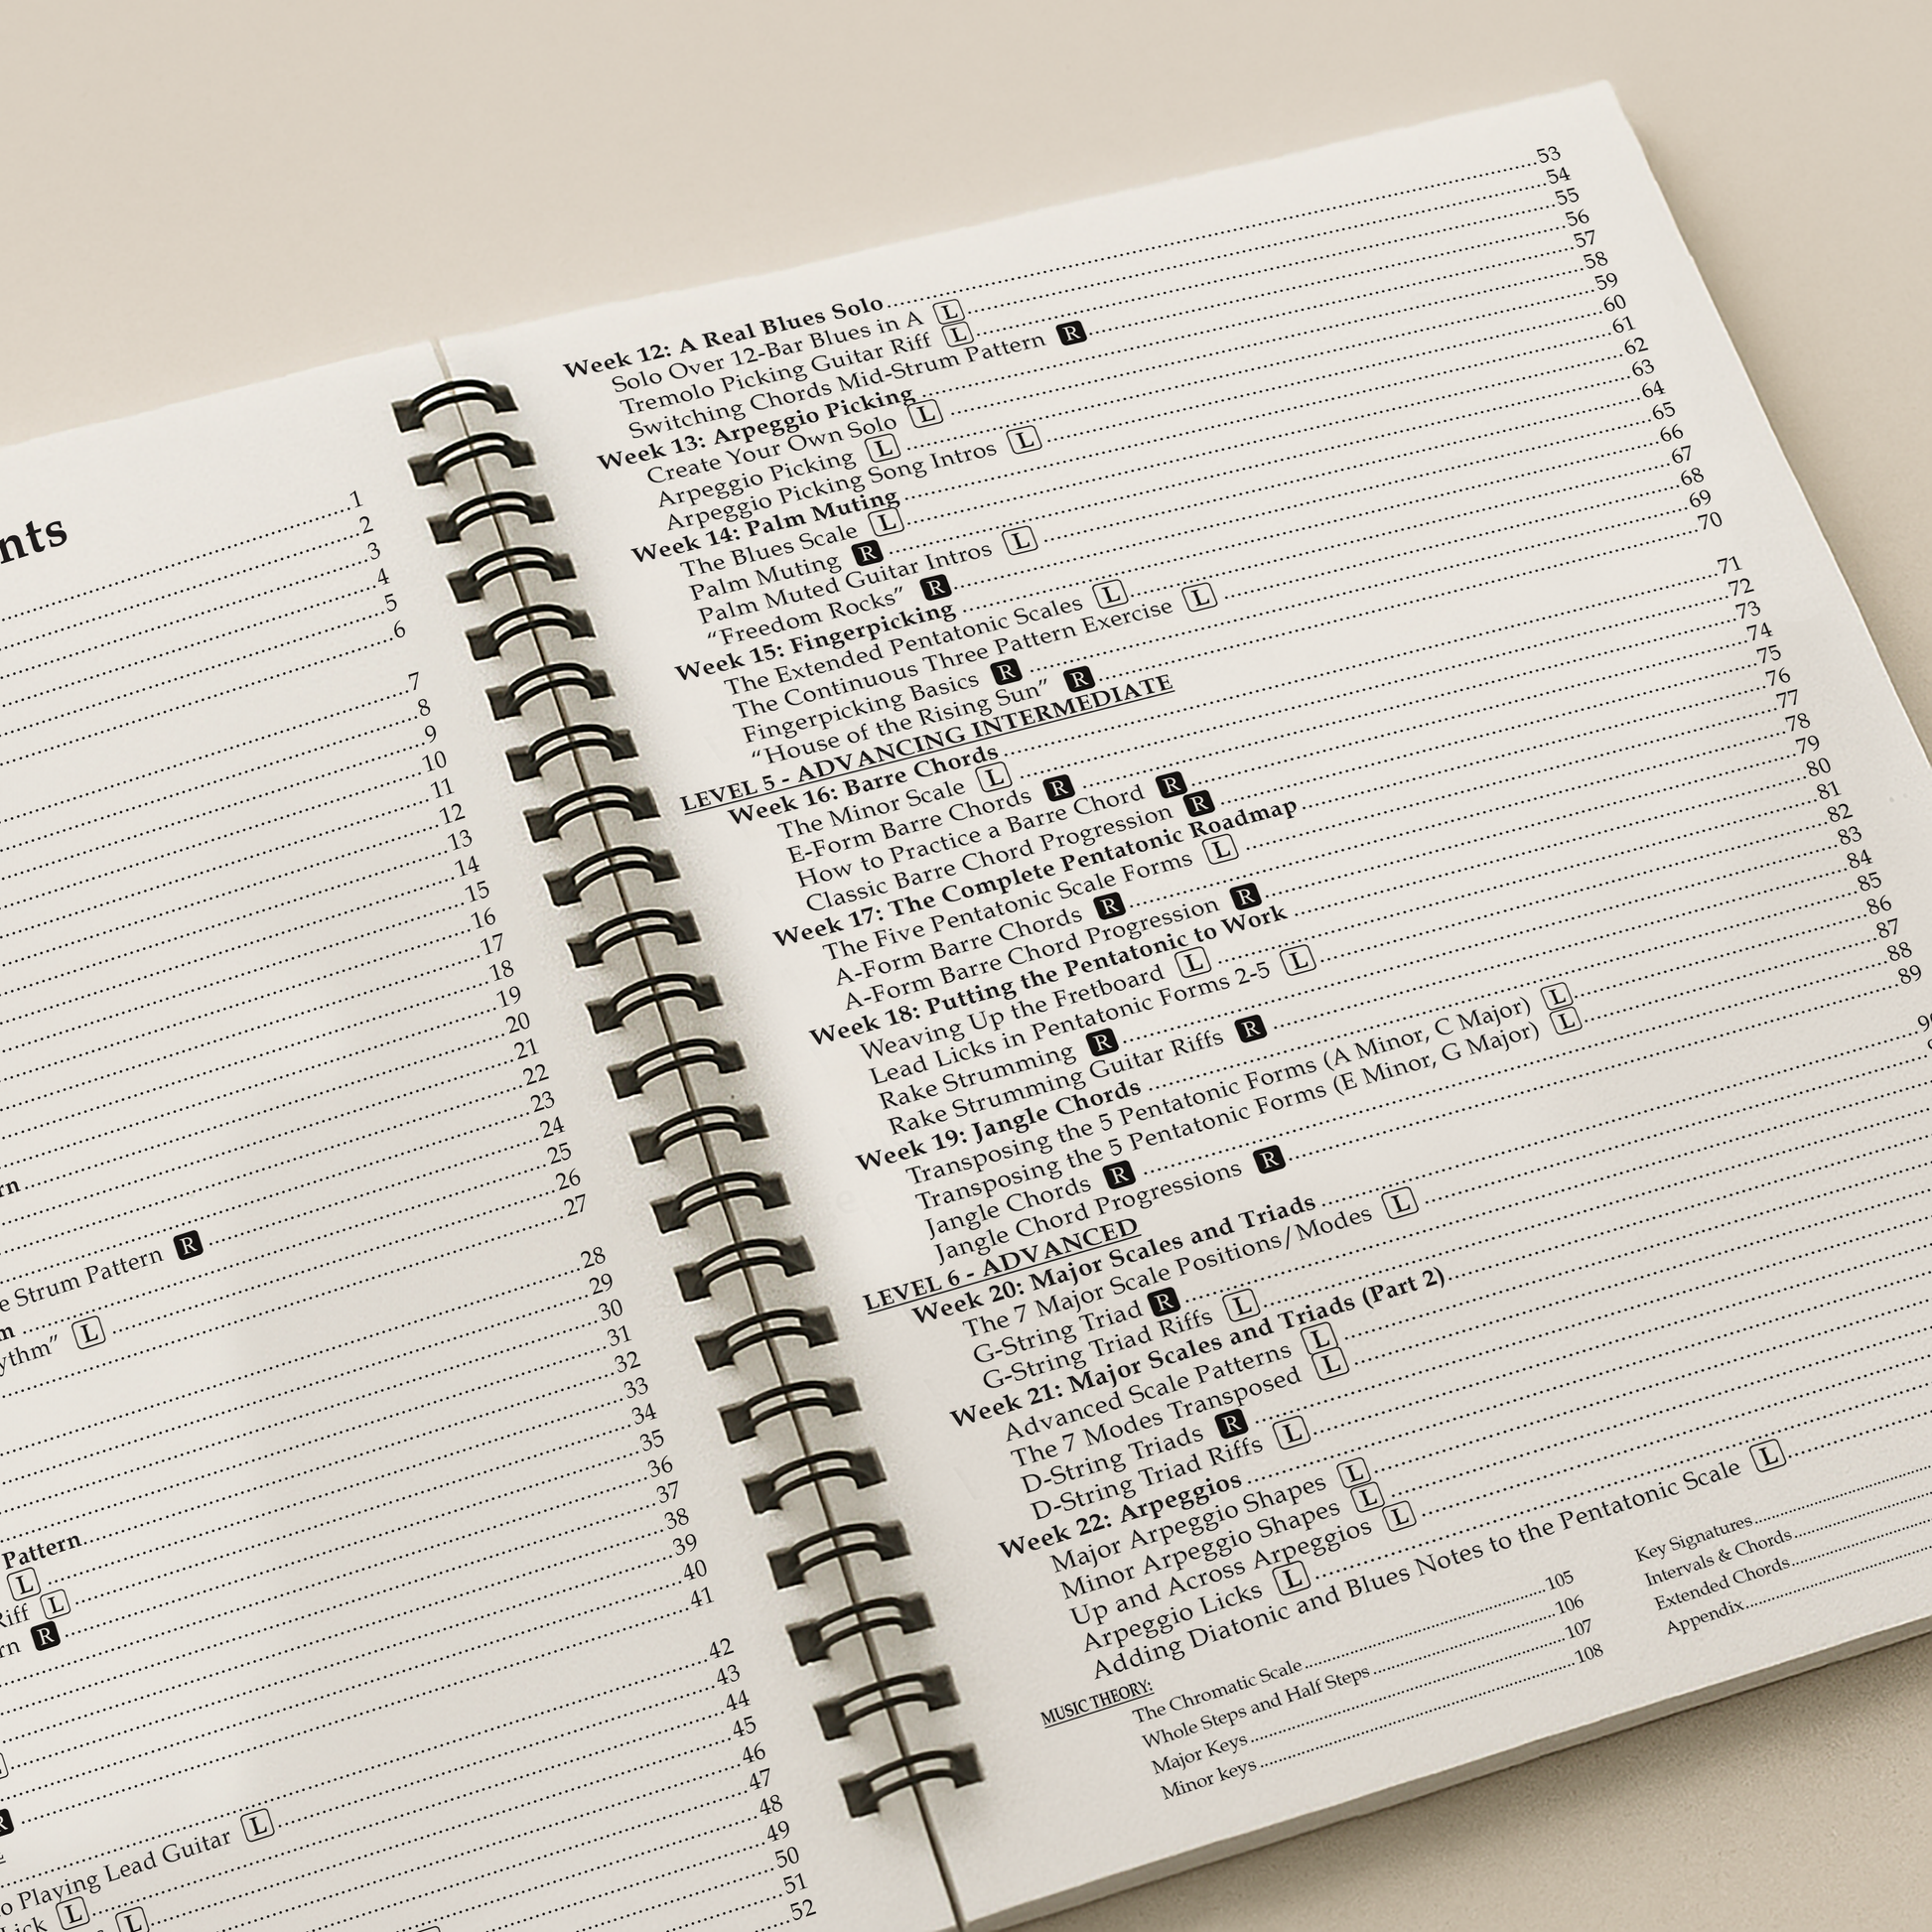 nts
1
2
3
4
5
6
7
8
9
10
11
12
13
14
15
16
17
18
19
rn 20
21
22
23
e Strum Pattern R 24
m 25
ythm" L 26
27
28
29
30
31
32
Pattern 33
L 34
Riff L 35
rn R 36
37
38
39
40
R 41
42
o Playing Lead Guitar L 43
Lick L 44
L 45
46
47
48
49
50
51
52
Week 12: A Real Blues Solo 53
Solo Over 12-Bar Blues in A L 54
Tremolo Picking Guitar Riff L 55
Switching Chords Mid-Strum Pattern R 56
Week 13: Arpeggio Picking 57
Create Your Own Solo L 58
Arpeggio Picking L 59
Arpeggio Picking Song Intros L 60
Week 14: Palm Muting 61
The Blues Scale L 62
Palm Muting R 63
Palm Muted Guitar Intros L 64
"Freedom Rocks" R 65
Week 15: Fingerpicking 66
The Extended Pentatonic Scales L 67
The Continuous Three Pattern Exercise L 68
Fingerpicking Basics R 69
"House of the Rising Sun" R 70
LEVEL 5 - ADVANCING INTERMEDIATE
Week 16: Barre Chords 71
The Minor Scale L 72
E-Form Barre Chords R 73
How to Practice a Barre Chord R 74
Classic Barre Chord Progression R 75
Week 17: The Complete Pentatonic Roadmap 76
The Five Pentatonic Scale Forms L 77
A-Form Barre Chords R 78
A-Form Barre Chord Progression R 79
Week 18: Putting the Pentatonic to Work 80
Weaving Up the Fretboard L 81
Lead Licks in Pentatonic Forms 2-5 L 82
Rake Strumming R 83
Rake Strumming Guitar Riffs R 84
Week 19: Jangle Chords 85
Transposing the 5 Pentatonic Forms (A Minor, C Major) L 86
Transposing the 5 Pentatonic Forms (E Minor, G Major) L 87
Jangle Chords R 88
Jangle Chord Progressions R 89
LEVEL 6 - ADVANCED
Week 20: Major Scales and Triads
The 7 Major Scale Positions/Modes L
G-String Triad R
G-String Triad Riffs L
Week 21: Major Scales and Triads (Part 2)
Advanced Scale Patterns L
The 7 Modes Transposed L
D-String Triads R
D-String Triad Riffs L
Week 22: Arpeggios
Major Arpeggio Shapes L
Minor Arpeggio Shapes L
Up and Across Arpeggios L
Arpeggio Licks L
Adding Diatonic and Blues Notes to the Pentatonic Scale L
MUSIC THEORY:
The Chromatic Scale 105
Whole Steps and Half Steps 106
Major Keys 107
Minor keys 108
Key Signatures
Intervals & Chords
Extended Chords
Appendix